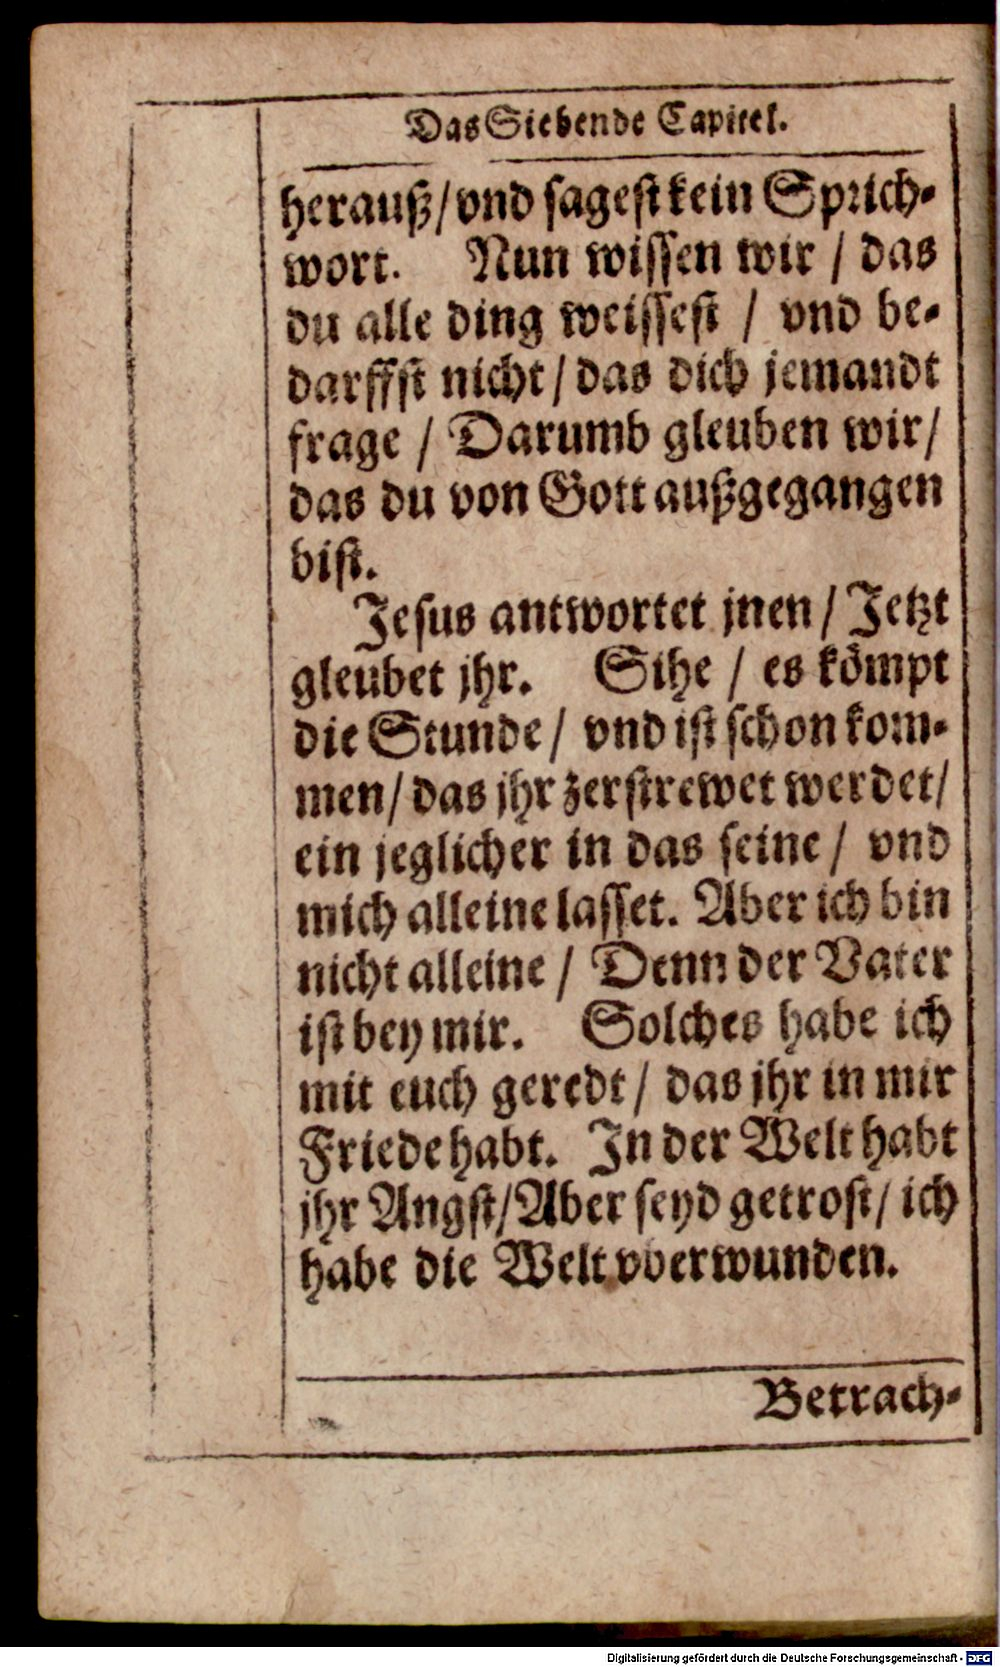 Das Siebende Capitel.
herauß/ vnd sagest kein Sprich-
wort. Nun wissen wir / das
du alle ding weissest / vnd be-
darffst nicht / das dich jemandt
frage / Darumb gleuben wir/
das du von Gott außgegangen
bist.
Jesus antwortet jnen / Jetzt
gleubet jhr. Sihe / es kömpt
die Stunde / vnd ist schon kom-
men/ das jhr zerstrewet werdet/
ein jeglicher in das seine / vnd
mich alleine lasset. Aber ich bin
nicht alleine / Denn der Vater
ist bey mir. Solches habe ich
mit euch geredt / das jhr in mir
Friede habt. In der Welt habt
jhr Angst/ Aber seyd getrost/ ich
habe die Welt vberwunden.
Betrach-
Digitalisierung gefördert durch die Deutsche Forschungsgemeinschaft - DFG